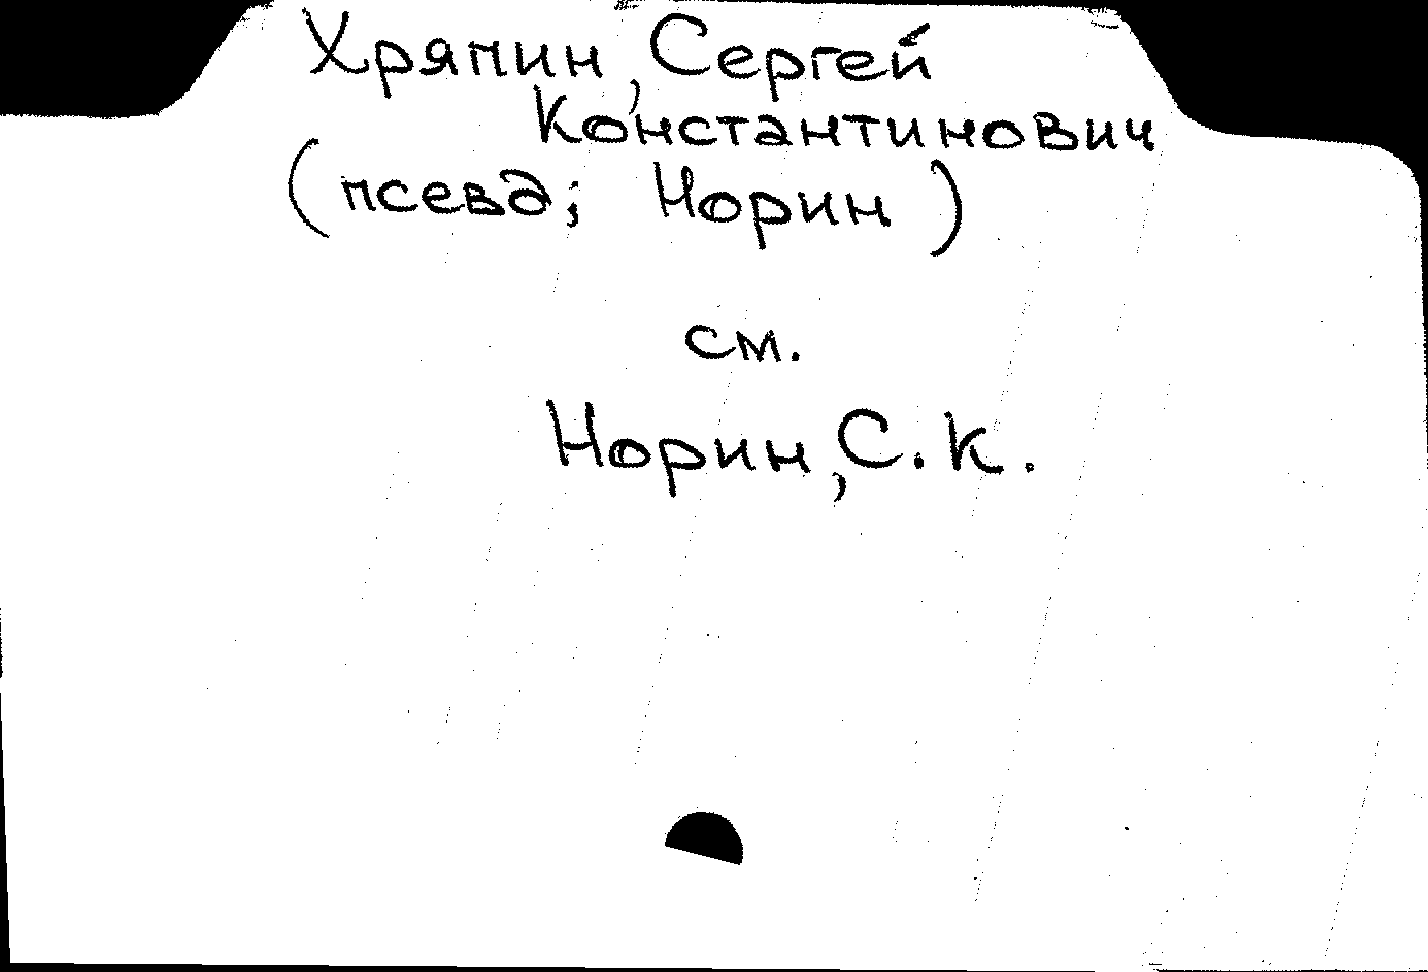 Хряпин, Сергей
Константинович
(псевд; Норин)
см.
Норин, С. К.